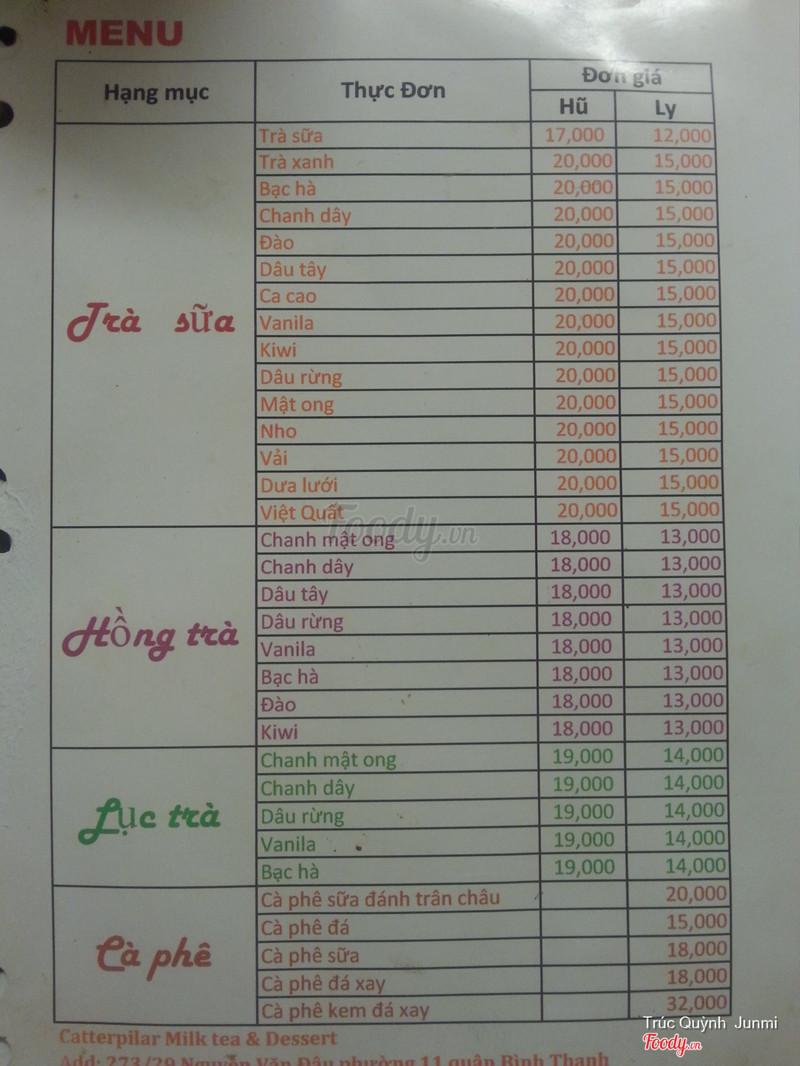 MENU
Hạng mục Thực Đơn Đơn giá
Hũ Ly
Trà sữa
Trà sữa 17,000 12,000
Trà xanh 20,000 15,000
Bạc hà 20,000 15,000
Chanh dây 20,000 15,000
Đào 20,000 15,000
Dâu tây 20,000 15,000
Ca cao 20,000 15,000
Vanila 20,000 15,000
Kiwi 20,000 15,000
Dâu rừng 20,000 15,000
Mật ong 20,000 15,000
Nho 20,000 15,000
Vải 20,000 15,000
Dưa lưới 20,000 15,000
Việt Quất 20,000 15,000
Foody.vn
Hồng trà
Chanh mật ong 18,000 13,000
Chanh dây 18,000 13,000
Dâu tây 18,000 13,000
Dâu rừng 18,000 13,000
Vanila 18,000 13,000
Bạc hà 18,000 13,000
Đào 18,000 13,000
Kiwi 18,000 13,000
Lục trà
Chanh mật ong 19,000 14,000
Chanh dây 19,000 14,000
Dâu rừng 19,000 14,000
Vanila 19,000 14,000
Bạc hà 19,000 14,000
Cà phê
Cà phê sữa đánh trân châu 20,000
Cà phê đá 15,000
Cà phê sữa 18,000
Cà phê đá xay 18,000
Cà phê kem đá xay 32,000
Catterpilar Milk tea & Dessert
Add: 273/29 Nguyễn Văn Đậu phường 11 quận Bình Thạnh
Trúc Quỳnh Junmi
Foody.vn